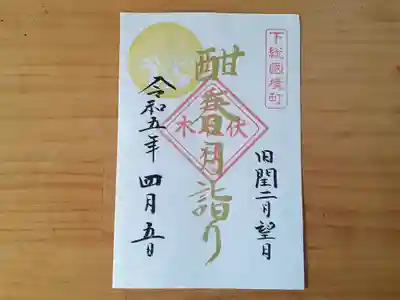 下総國境町
旧閏二月望日
酣春月詣り
伏木
令和五年 四月五日